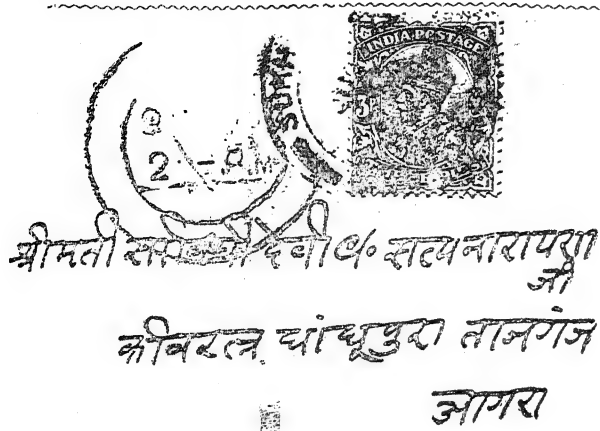 INDIA POSTAGE
श्रीमती देवी c/o सत्यनारायण
जी
कविरत्न धांधूपुरा ताजगंज
आगरा